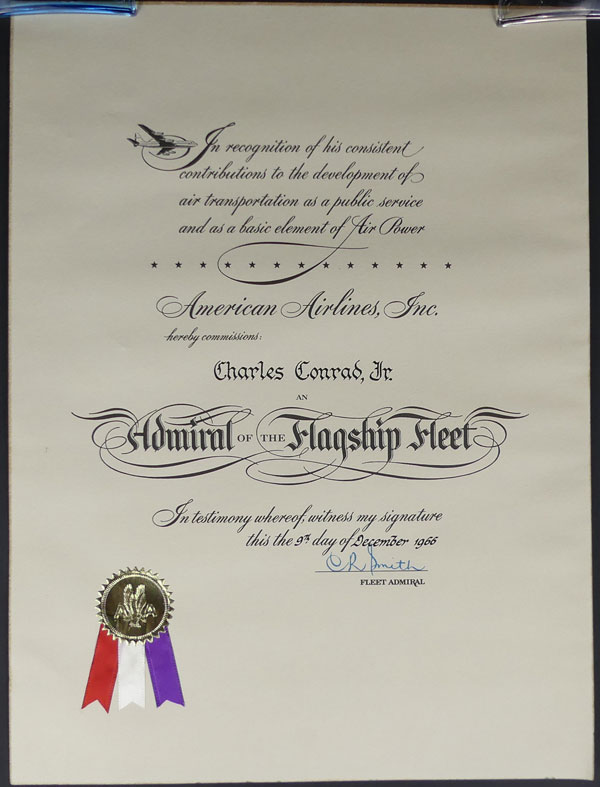 In recognition of his consistent
contributions to the development of
air transportation as a public service
and as a basic element of Air Power
American Airlines, Inc.
hereby commissions:
Charles Conrad, Jr.
AN
Admiral OF THE Flagship Fleet
In testimony whereof, witness my signature
this the 9th day of December 1966
C R Smith
FLEET ADMIRAL